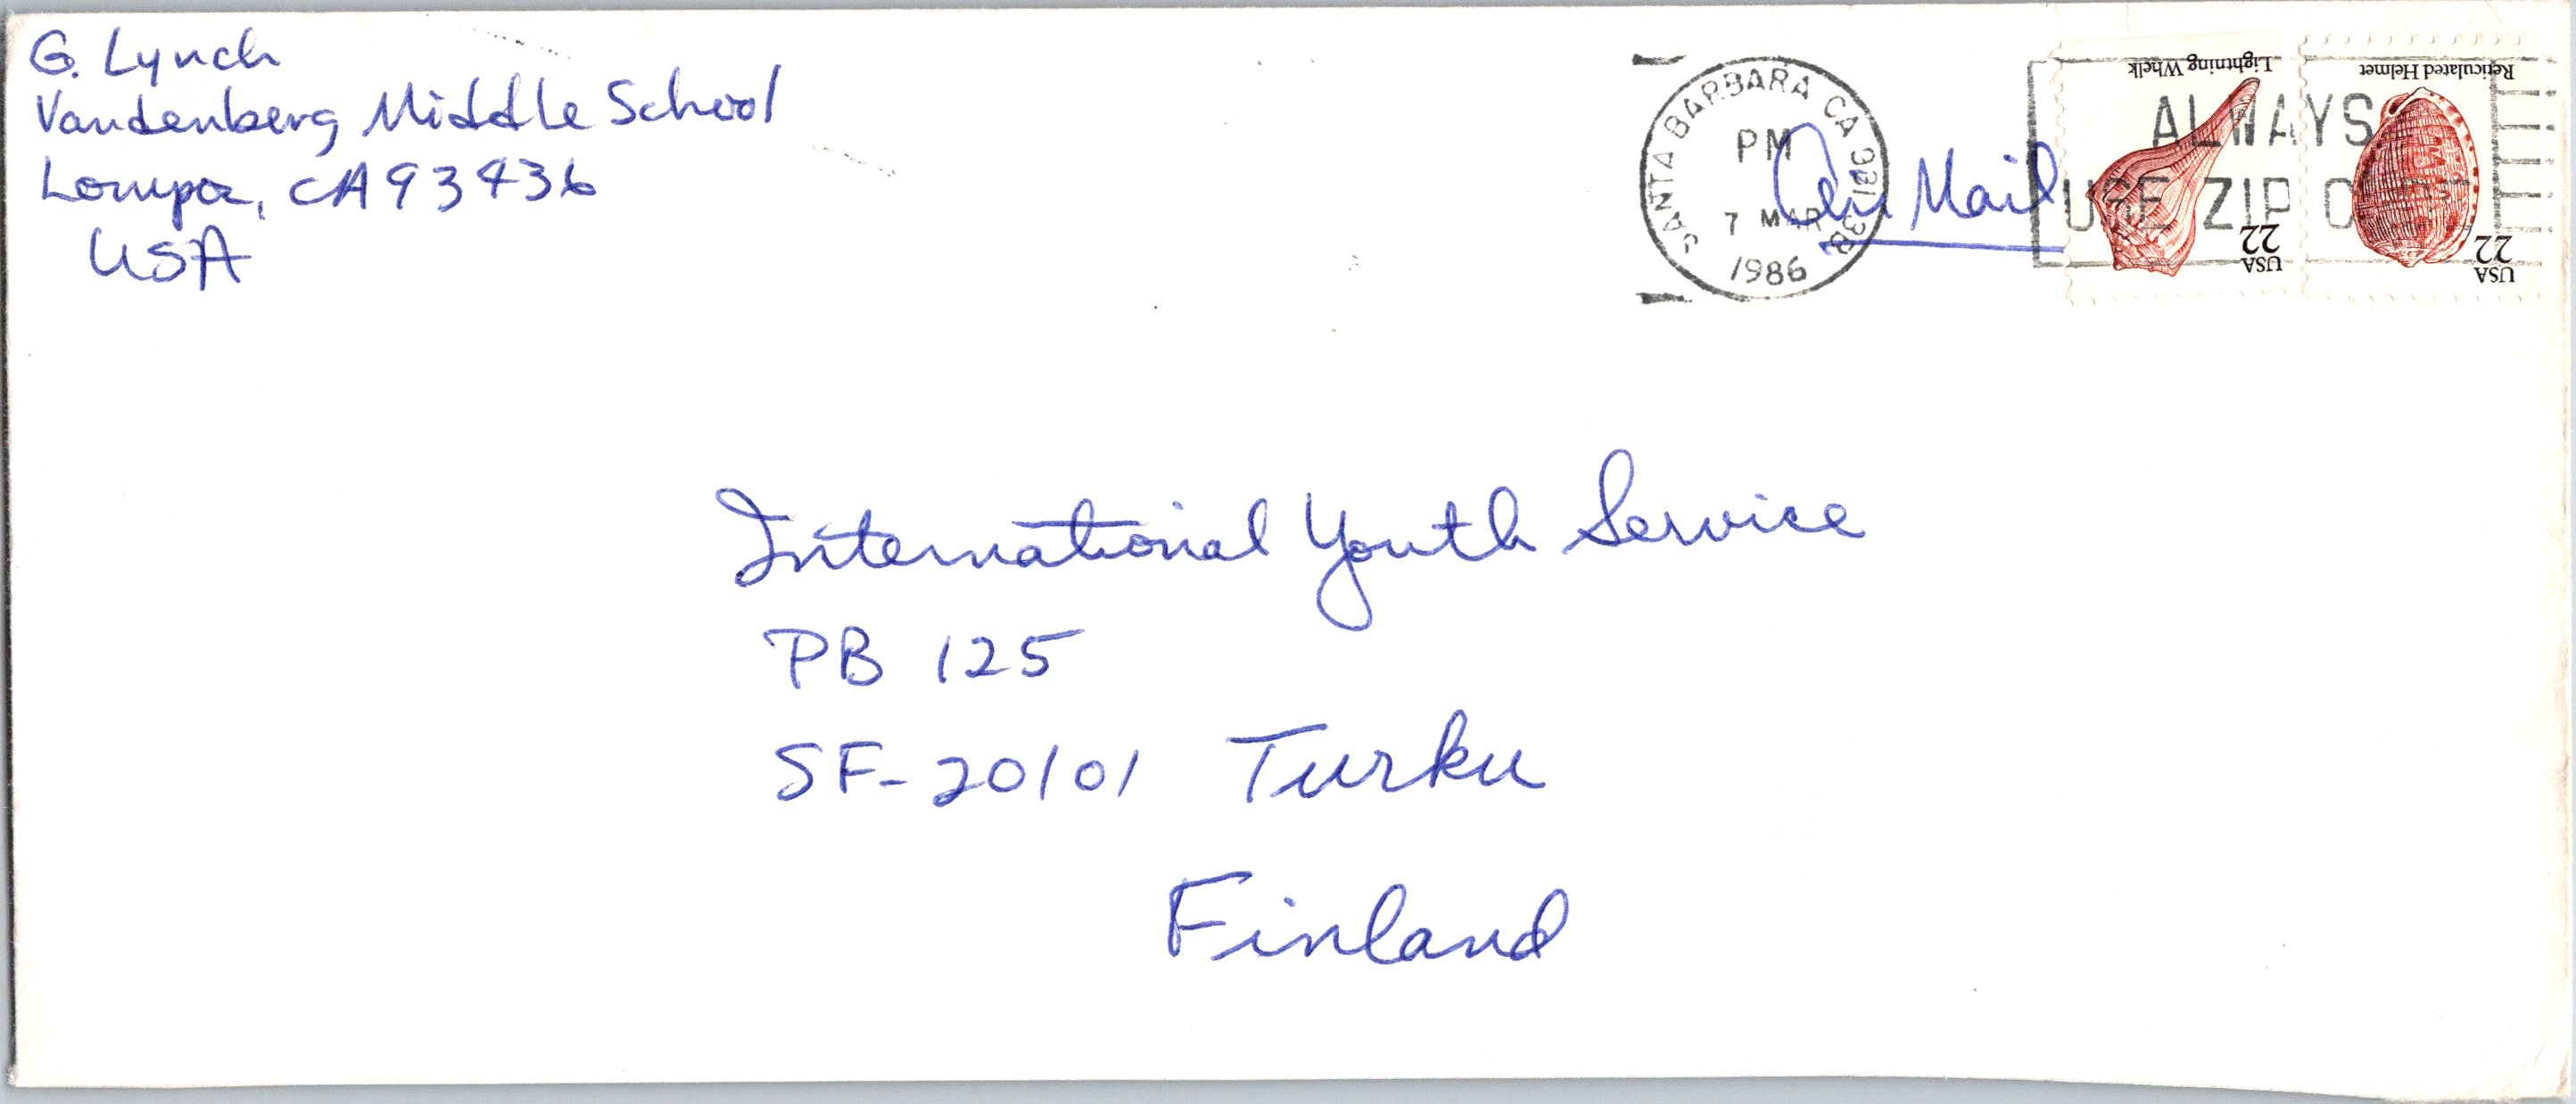 G. Lynch
Vandenberg Middle School
Lompoc, CA 93436
USA
SANTA BARBARA CA 931
PM
7 MAR
1986
Air Mail
ALWAYS
USE ZIP CODE
Lightning Whelk
22
USA
Reticulated Helmet
22
USA
International Youth Service
PB 125
SF-20101 Turku
Finland